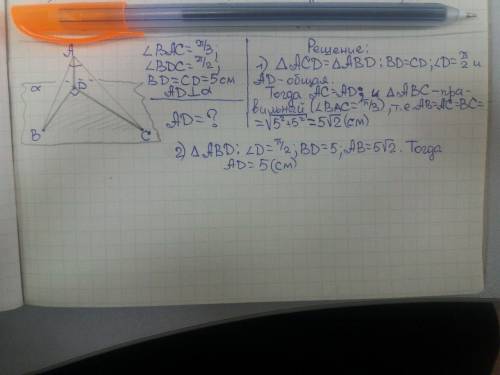 A
α
D
B
C
∠BAC=π/3;
∠BDC=π/2;
BD=CD=5см
AD⊥α
AD=?
Решение:
1) △ACD=△ABD: BD=CD; ∠D=π/2 и
AD-общая.
Тогда AC=AD; и △ABC-пра-
вильный (∠BAC=π/3), т.е AB=AC=BC=
=√5²+5²=5√2(см)
2) △ABD: ∠D=π/2, BD=5; AB=5√2. Тогда
AD=5(см)